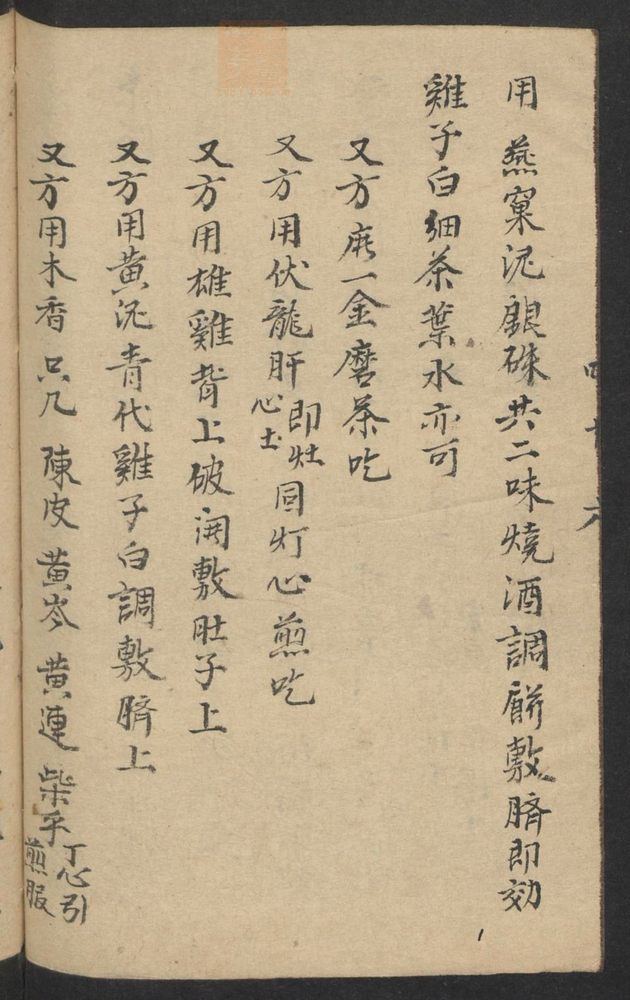 用燕窠泥銀硃共二味燒酒調餅敷臍即効
雞子白細茶葉水亦可
又方 一金磨茶吃
又方用伏龍肝即灶心土同灯心煎吃
又方用雄雞背上破開敷肚子上
又方用黄泥青代雞子白調敷臍上
又方用木香 只几 陳皮 黄岑 黄連 柴乎 丁心引煎服